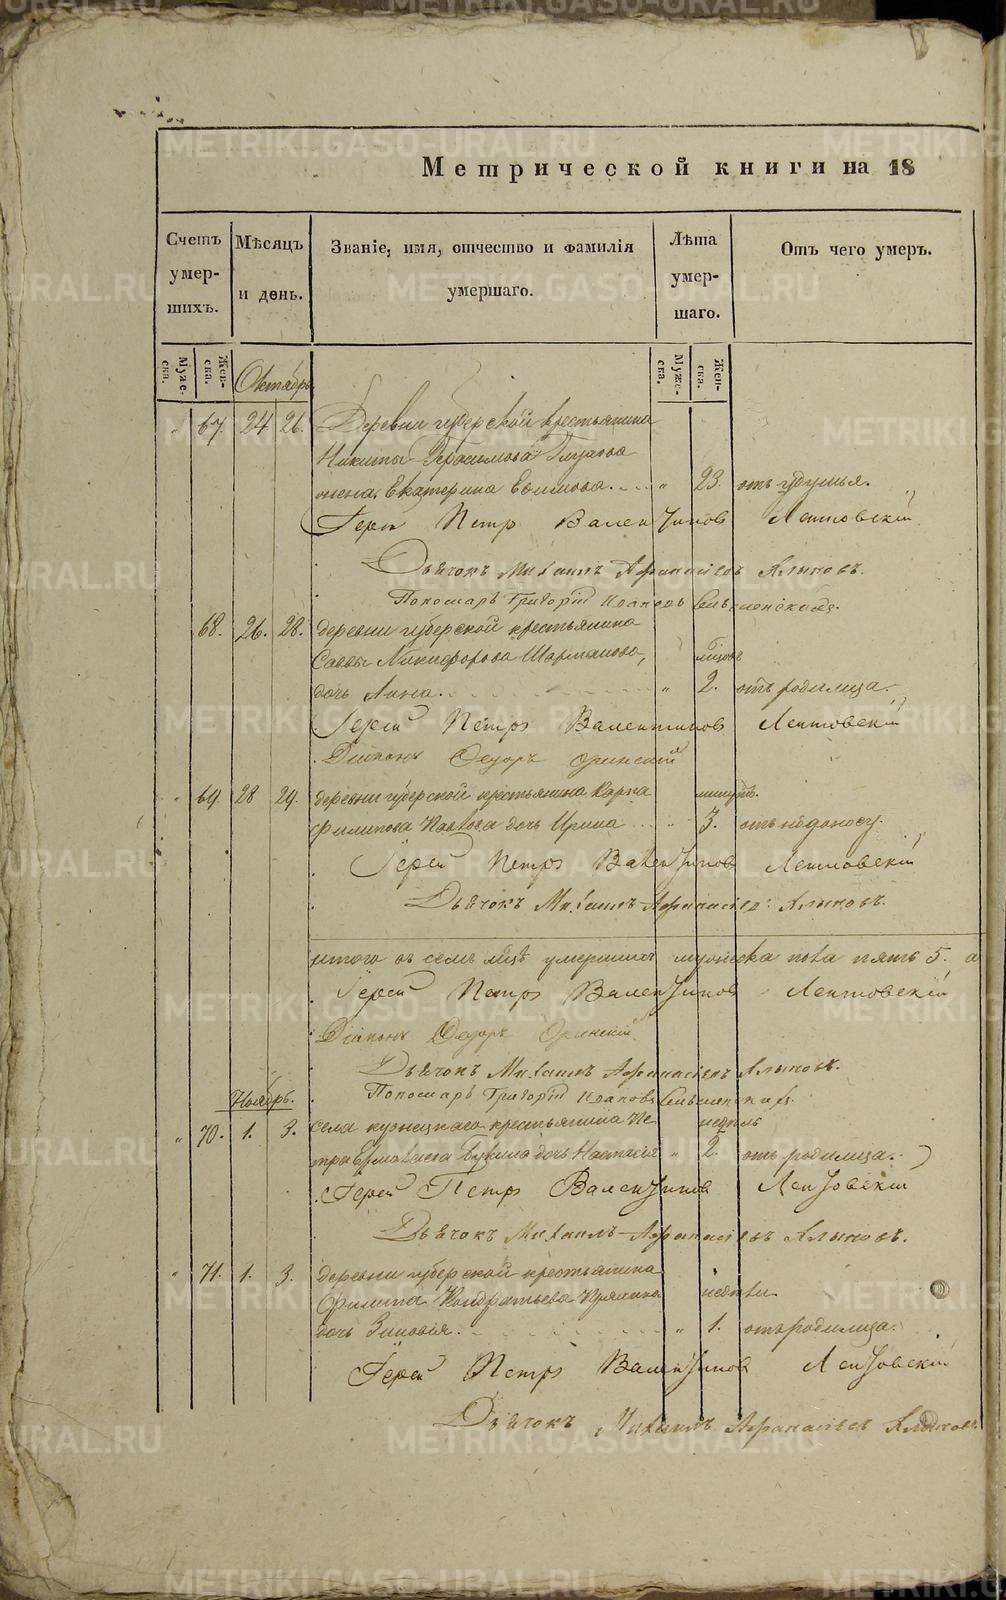 Метрической книги на 18
Счетъ умер-шихъ.
Мѣсяцъ и день.
Званіе, имя, отчество и фамилія умершаго.
Лѣта умер-шаго.
Отъ чего умеръ.
Муже-ска.
Жен-ска.
Муже-ска.
Жен-ска.
Октябрь
" 67. 24. 26. Деревни губерской крестьянина
Никиты Герасимова
жена Екатерина Ефимова. " 23. отъ удушья.
Іерей Петръ Валентиновъ Лентовскій
Дьячокъ Михаилъ Афанасіевъ Клыковъ.
Пономарь Григорій Ивановъ
68. 26. 28. деревни губерской крестьянина
Саввы Никифорова Шарманова, мѣсяцъ
дочь Анна. " 2. отъ родимца.
Іерей Петръ Валентиновъ Лентовскій
Діаконъ Федоръ
" 69 28 29. деревни губерской крестьянина Карпа минутъ.
Филипова Павлова дочь Ирина " 3. отъ недоносу.
Іерей Петръ Валентиновъ Лентовскій
Дьячокъ Михаилъ Афанасіевъ Клыковъ.
итого въ семъ мцѣ умершихъ мужеска пола пять 5. а
Іерей Петръ Валентиновъ Лентовскій
Діаконъ Федоръ
Дьячокъ Михаилъ Афанасіевъ Клыковъ.
Пономарь Григорій Ивановъ
Ноябрь.
" 70. 1. 3. села кузнецкаго крестьянина Пе недѣль
тра дочь Настасія " 2. отъ родимца.
Іерей Петръ Валентиновъ Лентовскій
Дьячокъ Михаилъ Афанасіевъ Клыковъ.
" 71. 1. 3. деревни губерской крестьянина
Филипа Кондратьева недѣли
дочь Зиновія. " 1. отъ родимца.
Іерей Петръ Валентиновъ Лентовскій
Дьячокъ Михаилъ Афанасіевъ Клыковъ.
METRIKI.GASO-URAL.RU